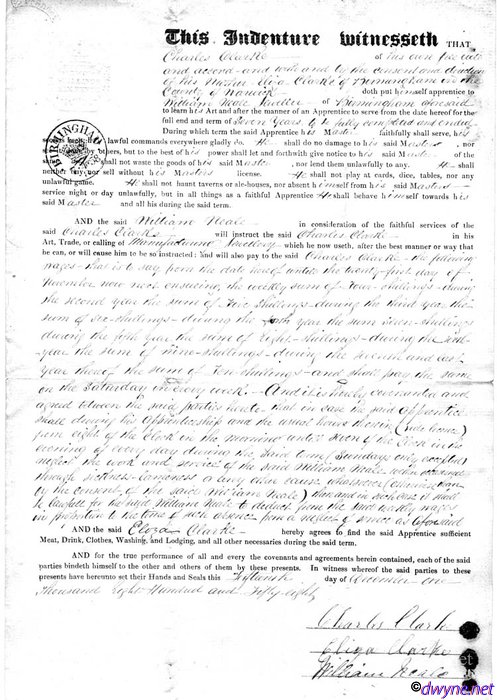 This Indenture Witnesseth THAT
Charles Clarke of his own free will
and accord and with and by the consent and direction
of his Mother Eliza Clarke of Birmingham in the
County of Warwick doth put himself apprentice to
William Neale Jeweller of Birmingham aforesaid
to learn his Art and after the manner of an Apprentice to serve from the date hereof for the
full end and term of Seven Years to be fully completed and ended
During which term the said Apprentice his Master faithfully shall serve, his
secrets keep, his lawful commands everywhere gladly do. He shall do no damage to his said Masters, nor
by others, but to the best of his power shall let and forthwith give notice to his said Master of the
He shall not waste the goods of his said Master, nor lend them unlawfully to any. He shall
neither buy nor sell without his Masters license. He shall not play at cards, dice, tables, nor any
unlawful game. He shall not haunt taverns or ale-houses, nor absent himself from his said Masters
service night or day unlawfully, but in all things as a faithful Apprentice He shall behave himself towards his
said Master and all his during the said term.
AND the said William Neale in consideration of the faithful services of the
said Charles Clarke will instruct the said Charles Clarke in his
Art, Trade, or calling of Manufacturing Jewellery which he now useth, after the best manner or way that
he can, or will cause him to be so instructed: and will also pay to the said Charles Clarke the following
wages – that is to say from the date hereof until the twenty-first day of
November now next ensuing, the weekly sum of Four shillings – during
the second year the sum of Five shillings – during the third year the
sum of Six – shillings – during the forth year the sum Seven – shillings
during the fifth year the sum of Eight – shillings – during the sixth
year the sum of Nine – shillings – during the seventh and last
year thereof the sum of Ten – shillings – and shall pay the same
on the Saturday in every week. – And it is hereby covenanted and
agreed between the said parties hereto that in case the said Apprentice
shall during his Apprenticeship and the usual hours therein
from eight of the Clock in the morning until Seven of the Clock in the
evening of every day during the said term (Sundays only excepted)
neglect the work and service of the said William Neale
through sickness – lameness or any other cause whatsoever
by the consent of the said William Neale) then and in such case it shall
be lawful for the said William Neale to deduct from the said weekly wages
in proportion to the time of such absence from or neglect of service as aforesaid
AND the said Eliza Clarke hereby agrees to find the said Apprentice sufficient
Meat, Drink, Clothes, Washing, and Lodging, and all other necessaries during the said term.
AND for the true performance of all and every the covenants and agreements herein contained, each of the said
parties bindeth himself to the other and others of them by these presents. In witness whereof the said parties to these
presents have hereunto set their Hands and Seals this Fifteenth day of December one
Thousand eight Hundred and Fifty eight
Charles Clark
Eliza Clarke
William Neale
©dwyne.net